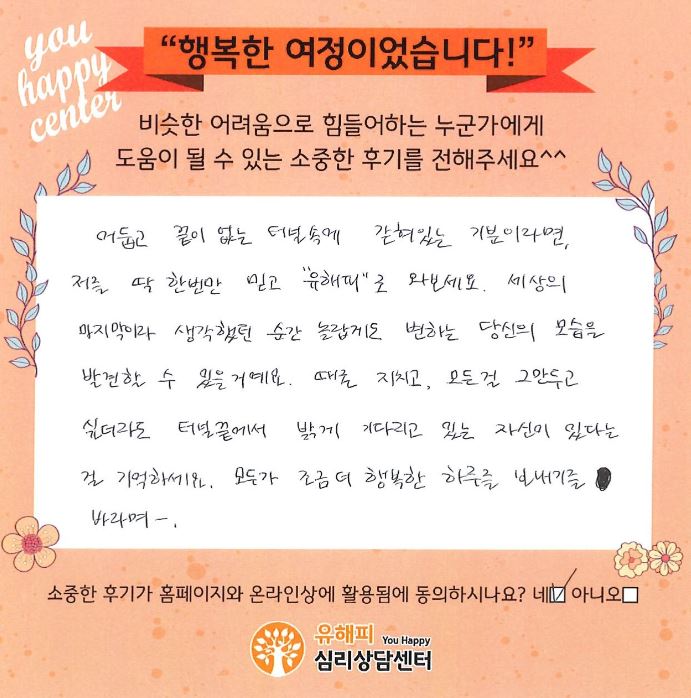 you
happy
center
“행복한 여정이었습니다!”
비슷한 어려움으로 힘들어하는 누군가에게
도움이 될 수 있는 소중한 후기를 전해주세요^^
어둡고 끝이 없는 터널속에 갇혀있는 기분이라면,
저를 딱 한번만 믿고 "유해피"로 와보세요. 세상의
마지막이라 생각했던 순간 놀랍게도 변하는 당신의 모습을
발견할 수 있을거예요. 때론 지치고, 모든걸 그만두고
싶더라도 터널끝에서 밝게 기다리고 있는 자신이 있다는
걸 기억하세요. 모두가 조금 더 행복한 하루를 보내기를
바라며-.
소중한 후기가 홈페이지와 온라인상에 활용됨에 동의하시나요? 네☑ 아니오□
유해피 You Happy
심리상담센터